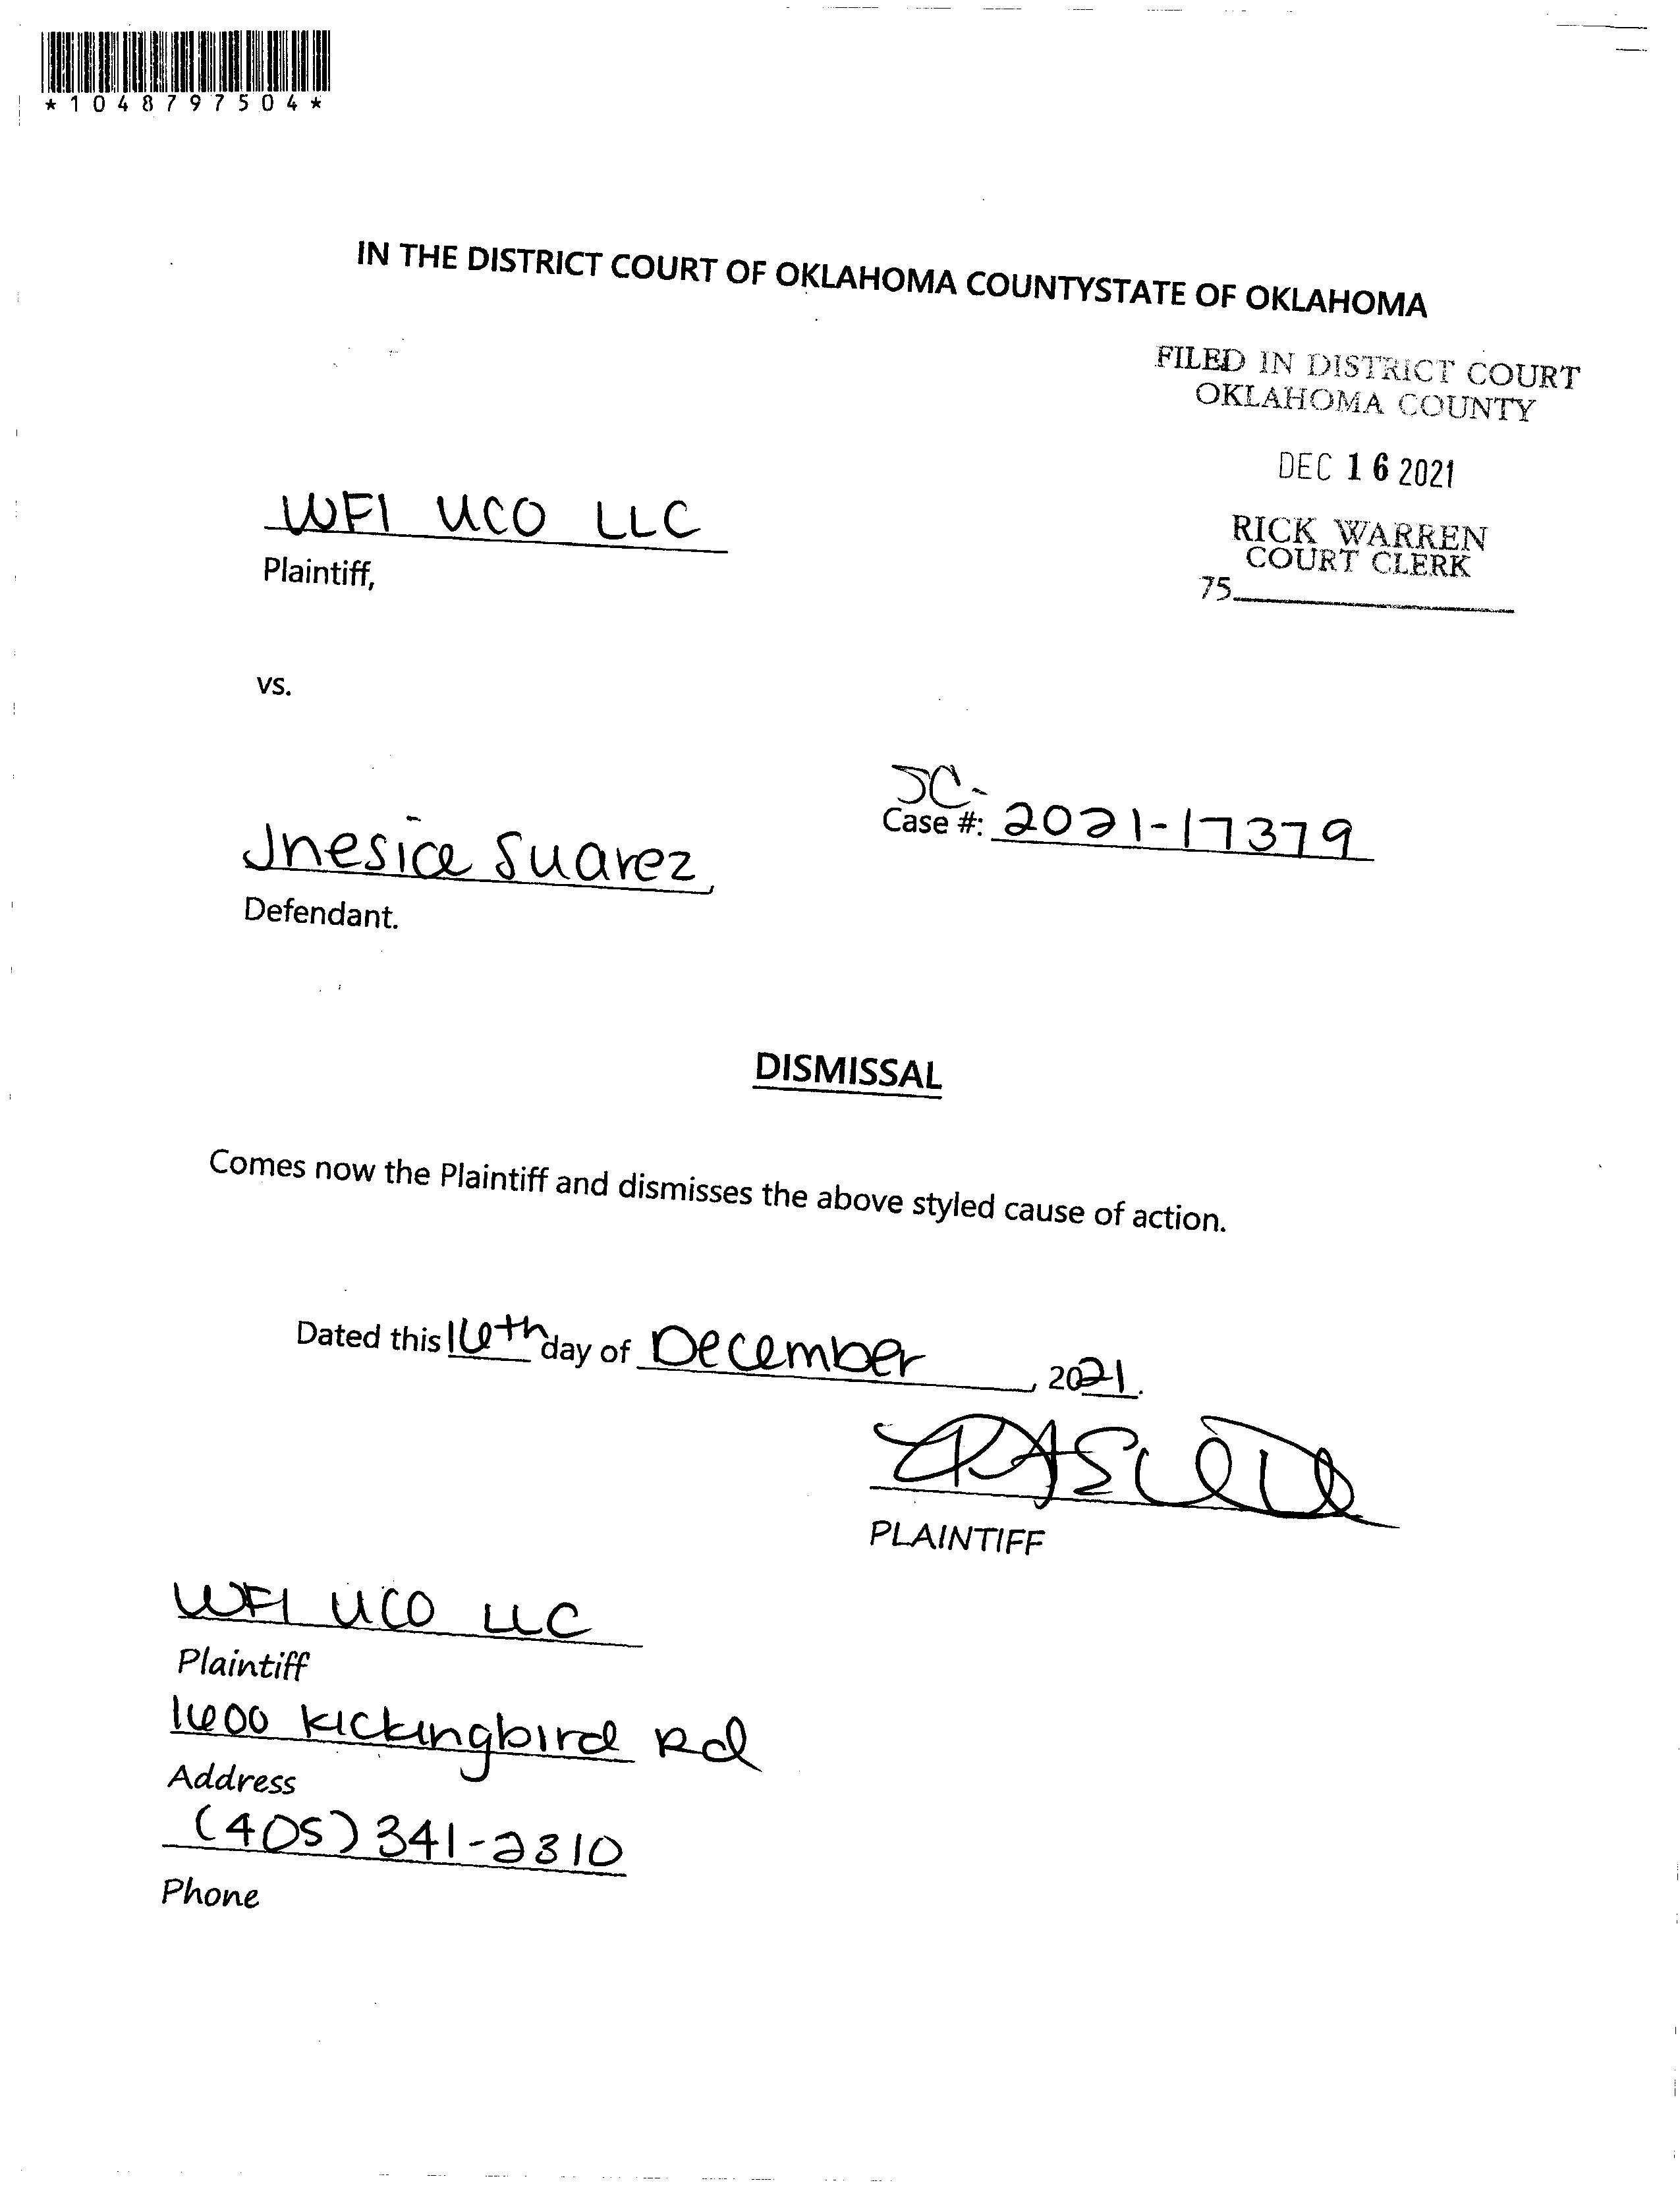 *1048797504*
IN THE DISTRICT COURT OF OKLAHOMA COUNTYSTATE OF OKLAHOMA
FILED IN DISTRICT COURT
OKLAHOMA COUNTY
DEC 16 2021
RICK WARREN
COURT CLERK
75
WFI UCO LLC
Plaintiff,
vs.
SC-
Case #: 2021-17379
Jnesice Suarez,
Defendant.
DISMISSAL
Comes now the Plaintiff and dismisses the above styled cause of action.
Dated this 16th day of December, 2021.
PLAINTIFF
WFI UCO LLC
Plaintiff
1600 Kickingbird Rd
Address
(405) 341-2310
Phone